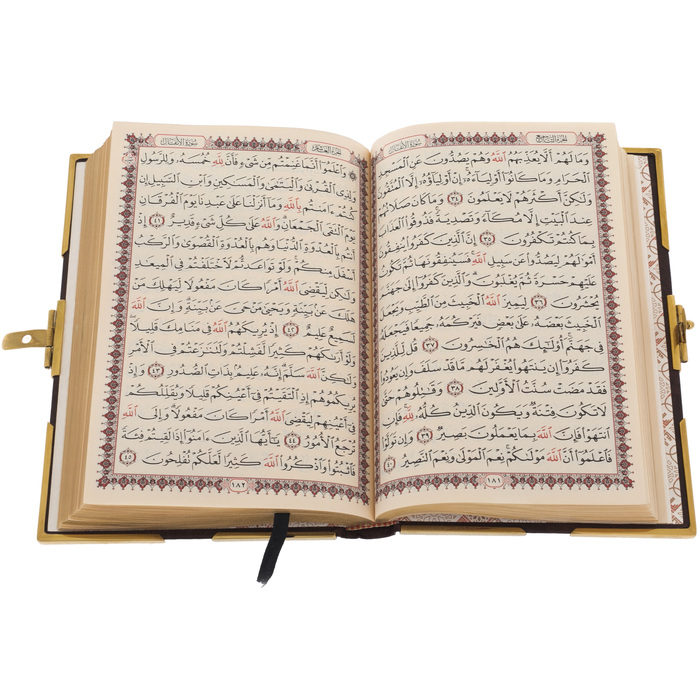 سورة الأنفال
الجزء التاسع
وَمَا لَهُمْ أَلَّا يُعَذِّبَهُمُ ٱللَّهُ وَهُمْ يَصُدُّونَ عَنِ ٱلْمَسْجِدِ
ٱلْحَرَامِ وَمَا كَانُوٓا۟ أَوْلِيَآءَهُۥٓ إِنْ أَوْلِيَآؤُهُۥٓ إِلَّا ٱلْمُتَّقُونَ
وَلَـٰكِنَّ أَكْثَرَهُمْ لَا يَعْلَمُونَ ٣٤ وَمَا كَانَ صَلَاتُهُمْ
عِندَ ٱلْبَيْتِ إِلَّا مُكَآءً وَتَصْدِيَةً فَذُوقُوا۟ ٱلْعَذَابَ
بِمَا كُنتُمْ تَكْفُرُونَ ٣٥ إِنَّ ٱلَّذِينَ كَفَرُوا۟ يُنفِقُونَ
أَمْوَٰلَهُمْ لِيَصُدُّوا۟ عَن سَبِيلِ ٱللَّهِ فَسَيُنفِقُونَهَا ثُمَّ تَكُونُ
عَلَيْهِمْ حَسْرَةً ثُمَّ يُغْلَبُونَ وَٱلَّذِينَ كَفَرُوٓا۟ إِلَىٰ جَهَنَّمَ
يُحْشَرُونَ ٣٦ لِيَمِيزَ ٱللَّهُ ٱلْخَبِيثَ مِنَ ٱلطَّيِّبِ وَيَجْعَلَ
ٱلْخَبِيثَ بَعْضَهُۥ عَلَىٰ بَعْضٍ فَيَرْكُمَهُۥ جَمِيعًا فَيَجْعَلَهُۥ
فِى جَهَنَّمَ أُو۟لَـٰٓئِكَ هُمُ ٱلْخَـٰسِرُونَ ٣٧ قُل لِّلَّذِينَ
كَفَرُوٓا۟ إِن يَنتَهُوا۟ يُغْفَرْ لَهُم مَّا قَدْ سَلَفَ وَإِن يَعُودُوا۟
فَقَدْ مَضَتْ سُنَّتُ ٱلْأَوَّلِينَ ٣٨ وَقَـٰتِلُوهُمْ حَتَّىٰ
لَا تَكُونَ فِتْنَةٌ وَيَكُونَ ٱلدِّينُ كُلُّهُۥ لِلَّهِ فَإِنِ
ٱنتَهَوْا۟ فَإِنَّ ٱللَّهَ بِمَا يَعْمَلُونَ بَصِيرٌ ٣٩ وَإِن تَوَلَّوْا۟
فَٱعْلَمُوٓا۟ أَنَّ ٱللَّهَ مَوْلَىٰكُمْ نِعْمَ ٱلْمَوْلَىٰ وَنِعْمَ ٱلنَّصِيرُ ٤٠
١٨١
سورة الأنفال
الجزء العاشر
وَٱعْلَمُوٓا۟ أَنَّمَا غَنِمْتُم مِّن شَىْءٍ فَأَنَّ لِلَّهِ خُمُسَهُۥ وَلِلرَّسُولِ
وَلِذِى ٱلْقُرْبَىٰ وَٱلْيَتَـٰمَىٰ وَٱلْمَسَـٰكِينِ وَٱبْنِ ٱلسَّبِيلِ إِن
كُنتُمْ ءَامَنتُم بِٱللَّهِ وَمَآ أَنزَلْنَا عَلَىٰ عَبْدِنَا يَوْمَ ٱلْفُرْقَانِ
يَوْمَ ٱلْتَقَى ٱلْجَمْعَانِ وَٱللَّهُ عَلَىٰ كُلِّ شَىْءٍ قَدِيرٌ ٤١ إِذْ
أَنتُم بِٱلْعُدْوَةِ ٱلدُّنْيَا وَهُم بِٱلْعُدْوَةِ ٱلْقُصْوَىٰ وَٱلرَّكْبُ
أَسْفَلَ مِنكُمْ وَلَوْ تَوَاعَدتُّمْ لَٱخْتَلَفْتُمْ فِى ٱلْمِيعَـٰدِ
وَلَـٰكِن لِّيَقْضِىَ ٱللَّهُ أَمْرًا كَانَ مَفْعُولًا لِّيَهْلِكَ مَنْ
هَلَكَ عَنۢ بَيِّنَةٍ وَيَحْيَىٰ مَنْ حَىَّ عَنۢ بَيِّنَةٍ وَإِنَّ ٱللَّهَ
لَسَمِيعٌ عَلِيمٌ ٤٢ إِذْ يُرِيكَهُمُ ٱللَّهُ فِى مَنَامِكَ قَلِيلًا
وَلَوْ أَرَىٰكَهُمْ كَثِيرًا لَّفَشِلْتُمْ وَلَتَنَـٰزَعْتُمْ فِى ٱلْأَمْرِ
وَلَـٰكِنَّ ٱللَّهَ سَلَّمَ إِنَّهُۥ عَلِيمٌۢ بِذَاتِ ٱلصُّدُورِ ٤٣ وَإِذْ
يُرِيكُمُوهُمْ إِذِ ٱلْتَقَيْتُمْ فِىٓ أَعْيُنِكُمْ قَلِيلًا وَيُقَلِّلُكُمْ
فِىٓ أَعْيُنِهِمْ لِيَقْضِىَ ٱللَّهُ أَمْرًا كَانَ مَفْعُولًا وَإِلَى ٱللَّهِ
تُرْجَعُ ٱلْأُمُورُ ٤٤ يَـٰٓأَيُّهَا ٱلَّذِينَ ءَامَنُوٓا۟ إِذَا لَقِيتُمْ فِئَةً
فَٱثْبُتُوا۟ وَٱذْكُرُوا۟ ٱللَّهَ كَثِيرًا لَّعَلَّكُمْ تُفْلِحُونَ ٤٥
١٨٢